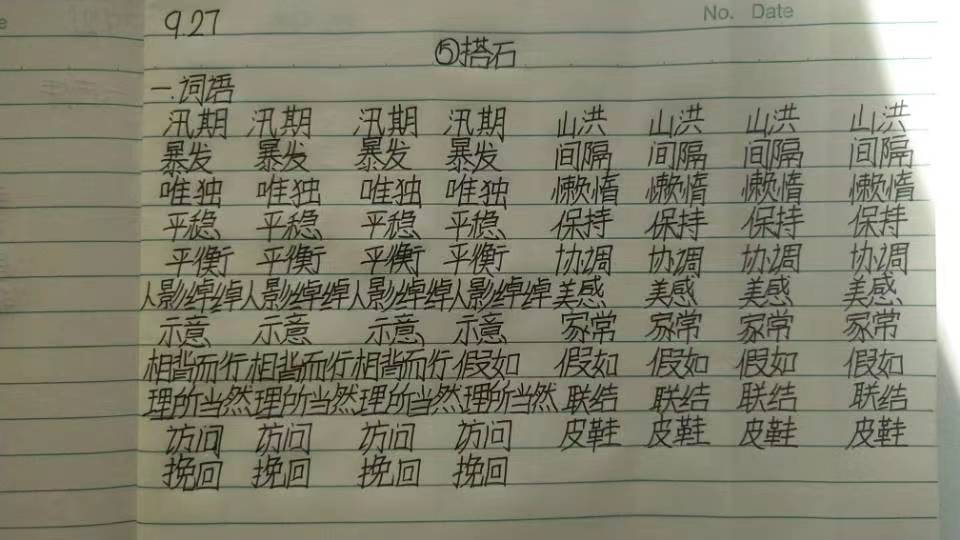 No. Date
9.27
⑤搭石
一.词语
汛期 汛期 汛期 汛期 山洪 山洪 山洪 山洪
暴发 暴发 暴发 暴发 间隔 间隔 间隔 间隔
唯独 唯独 唯独 唯独 懒惰 懒惰 懒惰 懒惰
平稳 平稳 平稳 平稳 保持 保持 保持 保持
平衡 平衡 平衡 平衡 协调 协调 协调 协调
人影绰绰 人影绰绰 人影绰绰 人影绰绰 美感 美感 美感 美感
示意 示意 示意 示意 家常 家常 家常 家常
相背而行 相背而行 相背而行 假如 假如 假如 假如 假如
理所当然 理所当然 理所当然 理所当然 联结 联结 联结 联结
访问 访问 访问 访问 皮鞋 皮鞋 皮鞋 皮鞋
挽回 挽回 挽回 挽回